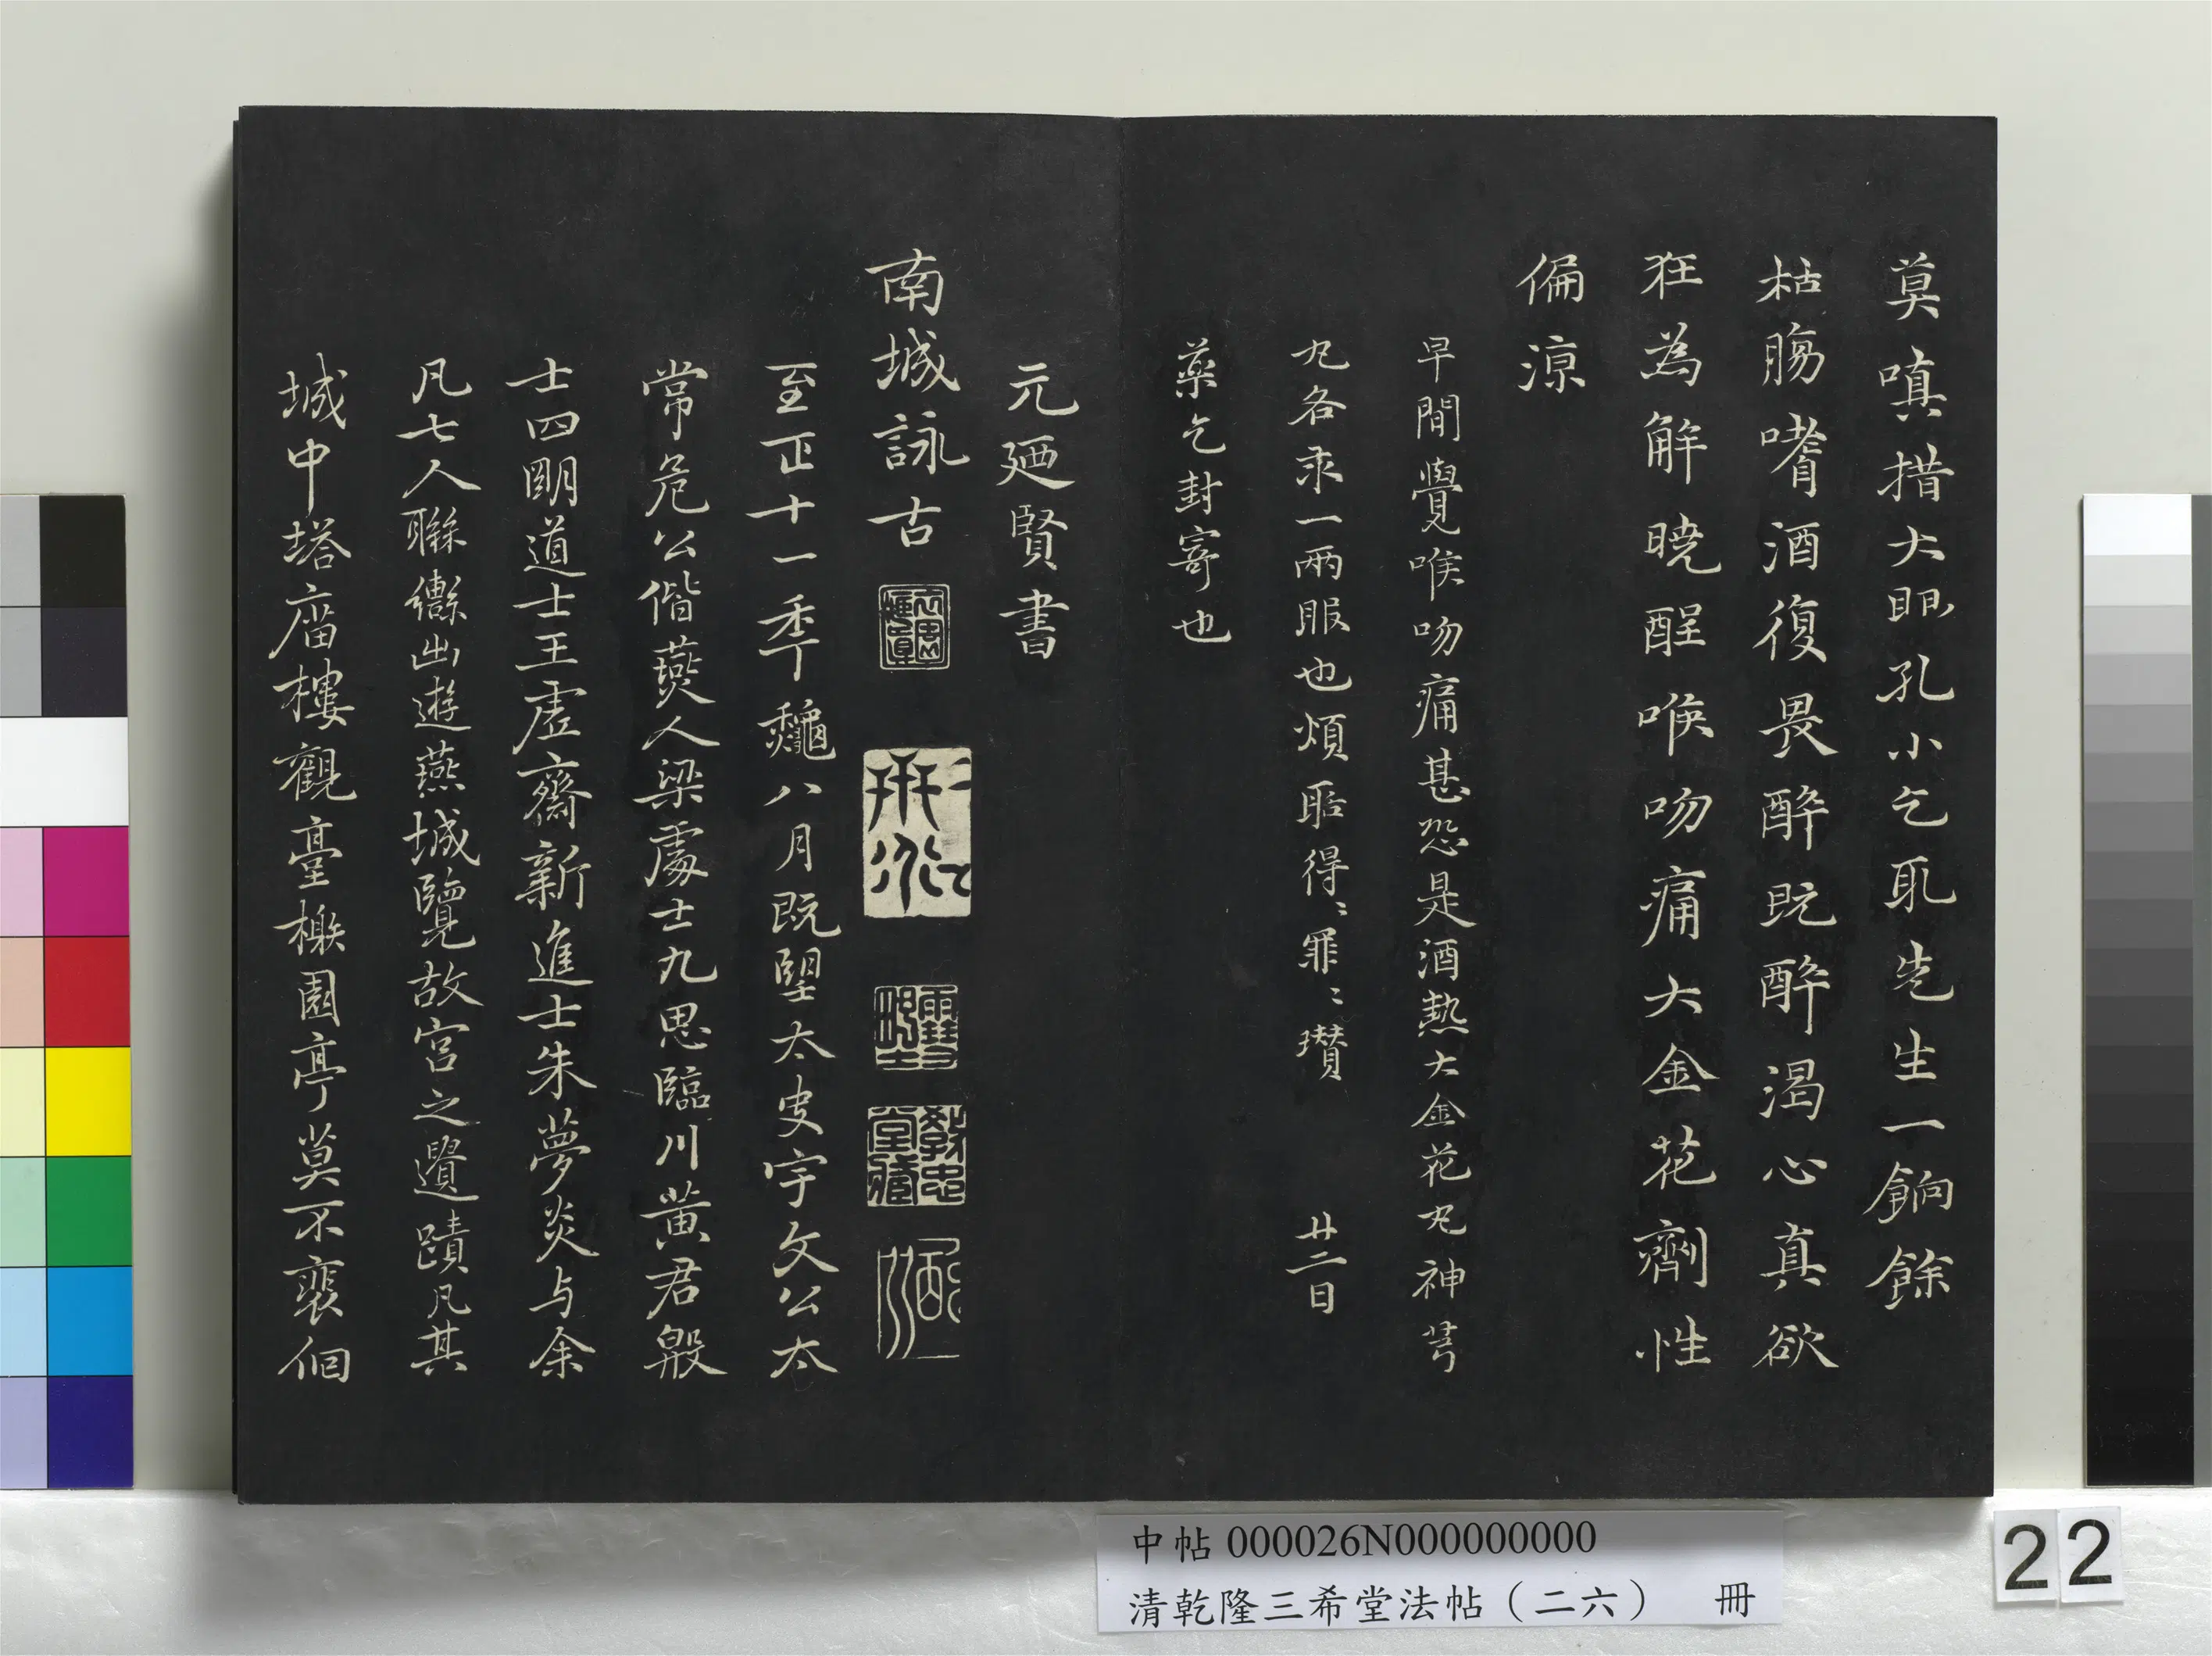 莫嗔措大眼孔小乞取先生一餉餘
枯腸嗜酒復畏醉既醉渴心真欲
狂為解曉酲喉吻痛大金花劑性
偏涼
早間覺喉吻痛甚恐是酒熱大金花丸神芎
丸各求一兩服也煩聒得〻罪〻瓚 廿二日
藥乞封寄也
元廼賢書
南城詠古
至正十一年秋八月既望太史宇文公太
常危公偕燕人梁處士九思臨川黃君殷
士四明道士王虛齋新進士朱夢炎与余
凡七人聯轡出遊燕城覽故宮之遺蹟凡其
城中塔廟樓觀臺榭園亭莫不裴佪
教忠堂藏
中帖000026N000000000
清乾隆三希堂法帖（二六） 冊
22